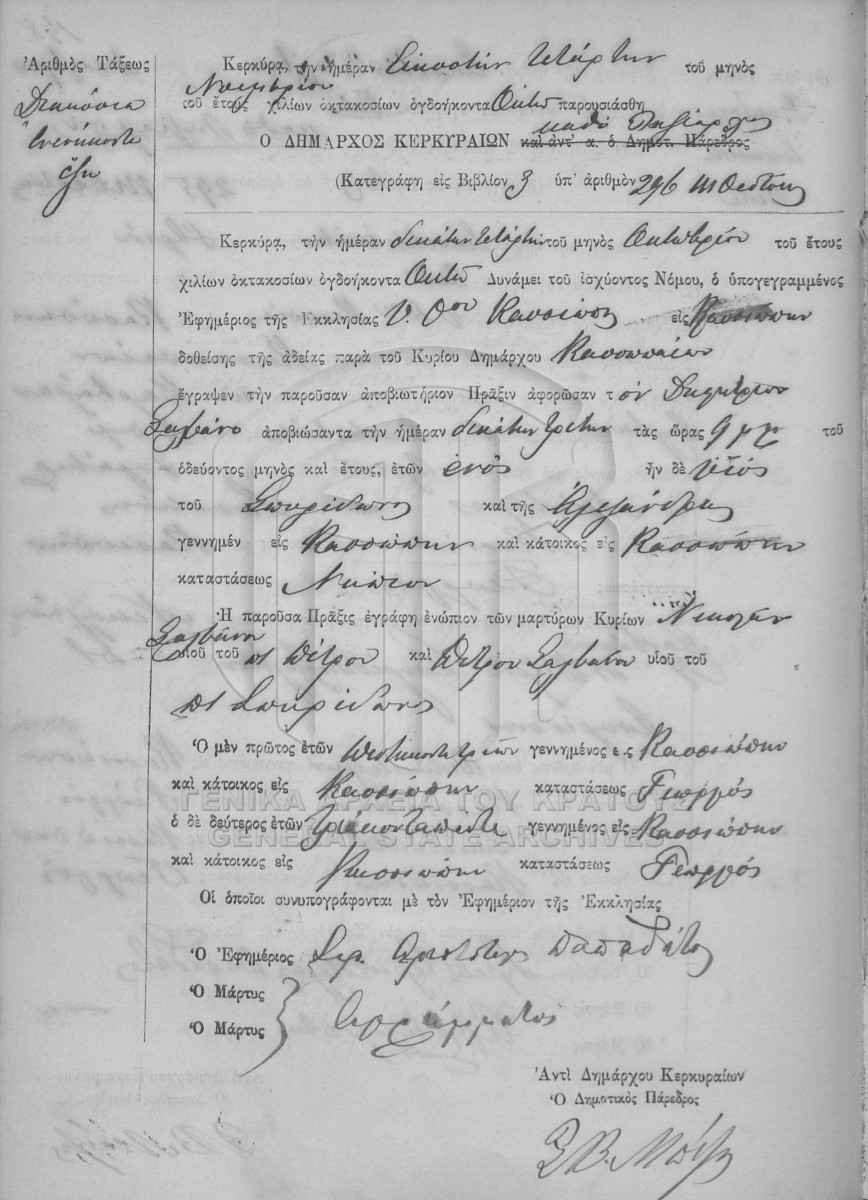 Ἀριθμὸς Τάξεως
Διακόσια
ἐνενήκοντα
ἕξη
Κερκύρα, τὴν ἡμέραν εἰκοστὴν τετάρτην τοῦ μηνὸς
Νοεμβρίου
τοῦ ἔτους χιλίων ὀκτακοσίων ὀγδοήκοντα Ὀκτὼ παρουσιάσθη
Ο ΔΗΜΑΡΧΟΣ ΚΕΡΚΥΡΑΙΩΝ καὶ ἀντ' α. ὁ Δημοτ. Πάρεδρος
(Κατεγράφη εἰς Βιβλίον 3 ὑπ' ἀριθμὸν 296
Κερκύρα, τὴν ἡμέραν δεκάτην τετάρτην τοῦ μηνὸς Ὀκτωβρίου τοῦ ἔτους
χιλίων ὀκτακοσίων ὀγδοήκοντα Ὀκτὼ Δυνάμει τοῦ ἰσχύοντος Νόμου, ὁ ὑπογεγραμμένος
Ἐφημέριος τῆς Ἐκκλησίας Υ. Θου Κασσιώπης εἰς Κασσιώπην
δοθείσης τῆς ἀδείας παρὰ τοῦ Κυρίου Δημάρχου Κασσωπαίων
ἔγραψεν τὴν παροῦσαν ἀποβιωτήριον Πρᾶξιν ἀφορῶσαν τ ὸν Δημήτριον
Σαλβάνο ἀποβιώσαντα τὴν ἡμέραν δεκάτην τρίτην τὰς ὥρας 9 μ μ τοῦ
ὁδεύοντος μηνὸς καὶ ἔτους, ἐτῶν ἑνὸς ἦν δὲ υἱὸς
τοῦ Σπυρίδωνος καὶ τῆς Ἀλεξάνδρας
γεννημέν εἰς Κασσιώπην καὶ κάτοικος εἰς Κασσιώπην
καταστάσεως Νήπιον
Ἡ παροῦσα Πρᾶξις ἐγράφη ἐνώπιον τῶν μαρτύρων Κυρίων Νικολάου
Σαλβάνου
υἱοῦ τοῦ πτ Πέτρου καὶ Πέτρου Σαλβάνου υἱοῦ τοῦ
πτ Σπυρίδωνος
Ὁ μὲν πρῶτος ἐτῶν πεντήκοντα τριῶν γεννημένος εἰς Κασσιώπην
καὶ κάτοικος εἰς Κασσιώπην καταστάσεως Γεωργός
ὁ δὲ δεύτερος ἐτῶν τριάκοντα πέντε γεννημένος εἰς Κασσιώπην
καὶ κάτοικος εἰς Κασσιώπην καταστάσεως Γεωργός
ΓΕΝΙΚΑ ΑΡΧΕΙΑ ΤΟΥ ΚΡΑΤΟΥΣ
GENERAL STATE ARCHIVES
Οἱ ὁποῖοι συνυπογράφονται μὲ τὸν Ἐφημέριον τῆς Ἐκκλησίας
Ὁ Ἐφημέριος
Ὁ Μάρτυς
Ὁ Μάρτυς
Ἀγράμματος
Ἀντὶ Δημάρχου Κερκυραίων
Ὁ Δημοτικὸς Πάρεδρος